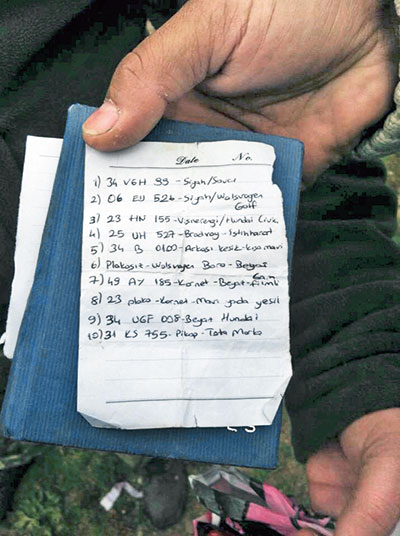 Date No.
1) 34 VGH 99 - Siyah/
2) 06 EU 526 - Siyah/Wolsvagen
Golf
3) 23 HN 155 - Visnerengi/Hundai
4) 25 UH 527 - Bradvay - İstihbarat
5) 34 B 0100 - Arkası kesik - kısa mavi
6) Plakasız - Wolsvagen Bora - Beyaz
7) 49 AY 185 - Kornet - Beyaz - filimli
Cam
8) 23 plaka - Kornet - Mavi yada yesil
9) 34 UGF 008 - Beyaz Hundai
10) 31 KS 755 - Pikap - Tata Marka